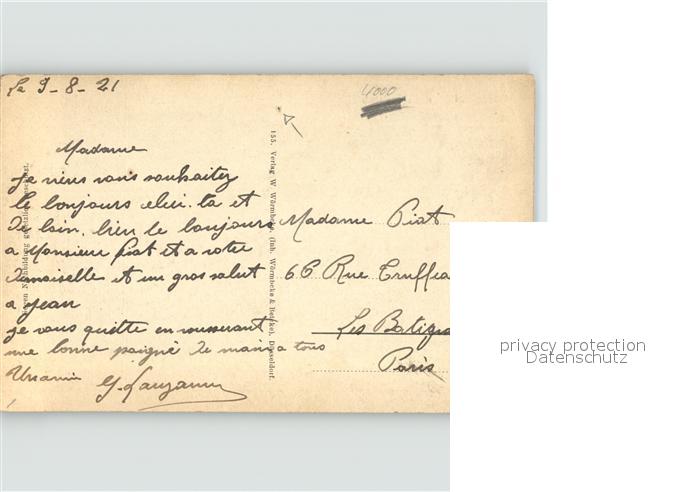 Le 9-8-21
4000
Madame
Je viens vous souhaitez
le bonjours et
de loin, bien le bonjours
a Monsieur Piat et a votre
demoiselle et un gros salut
a Jean
Je vous quitte en
une bonne poigné de main a tous
G. Lauzanne
155. Verlag W. Würmbcke, (Inh. Würmbcke & Betcke), Düsseldorf.
Madame Piat
66 Rue Truffea
Les Batign
Paris
privacy protection
Datenschutz